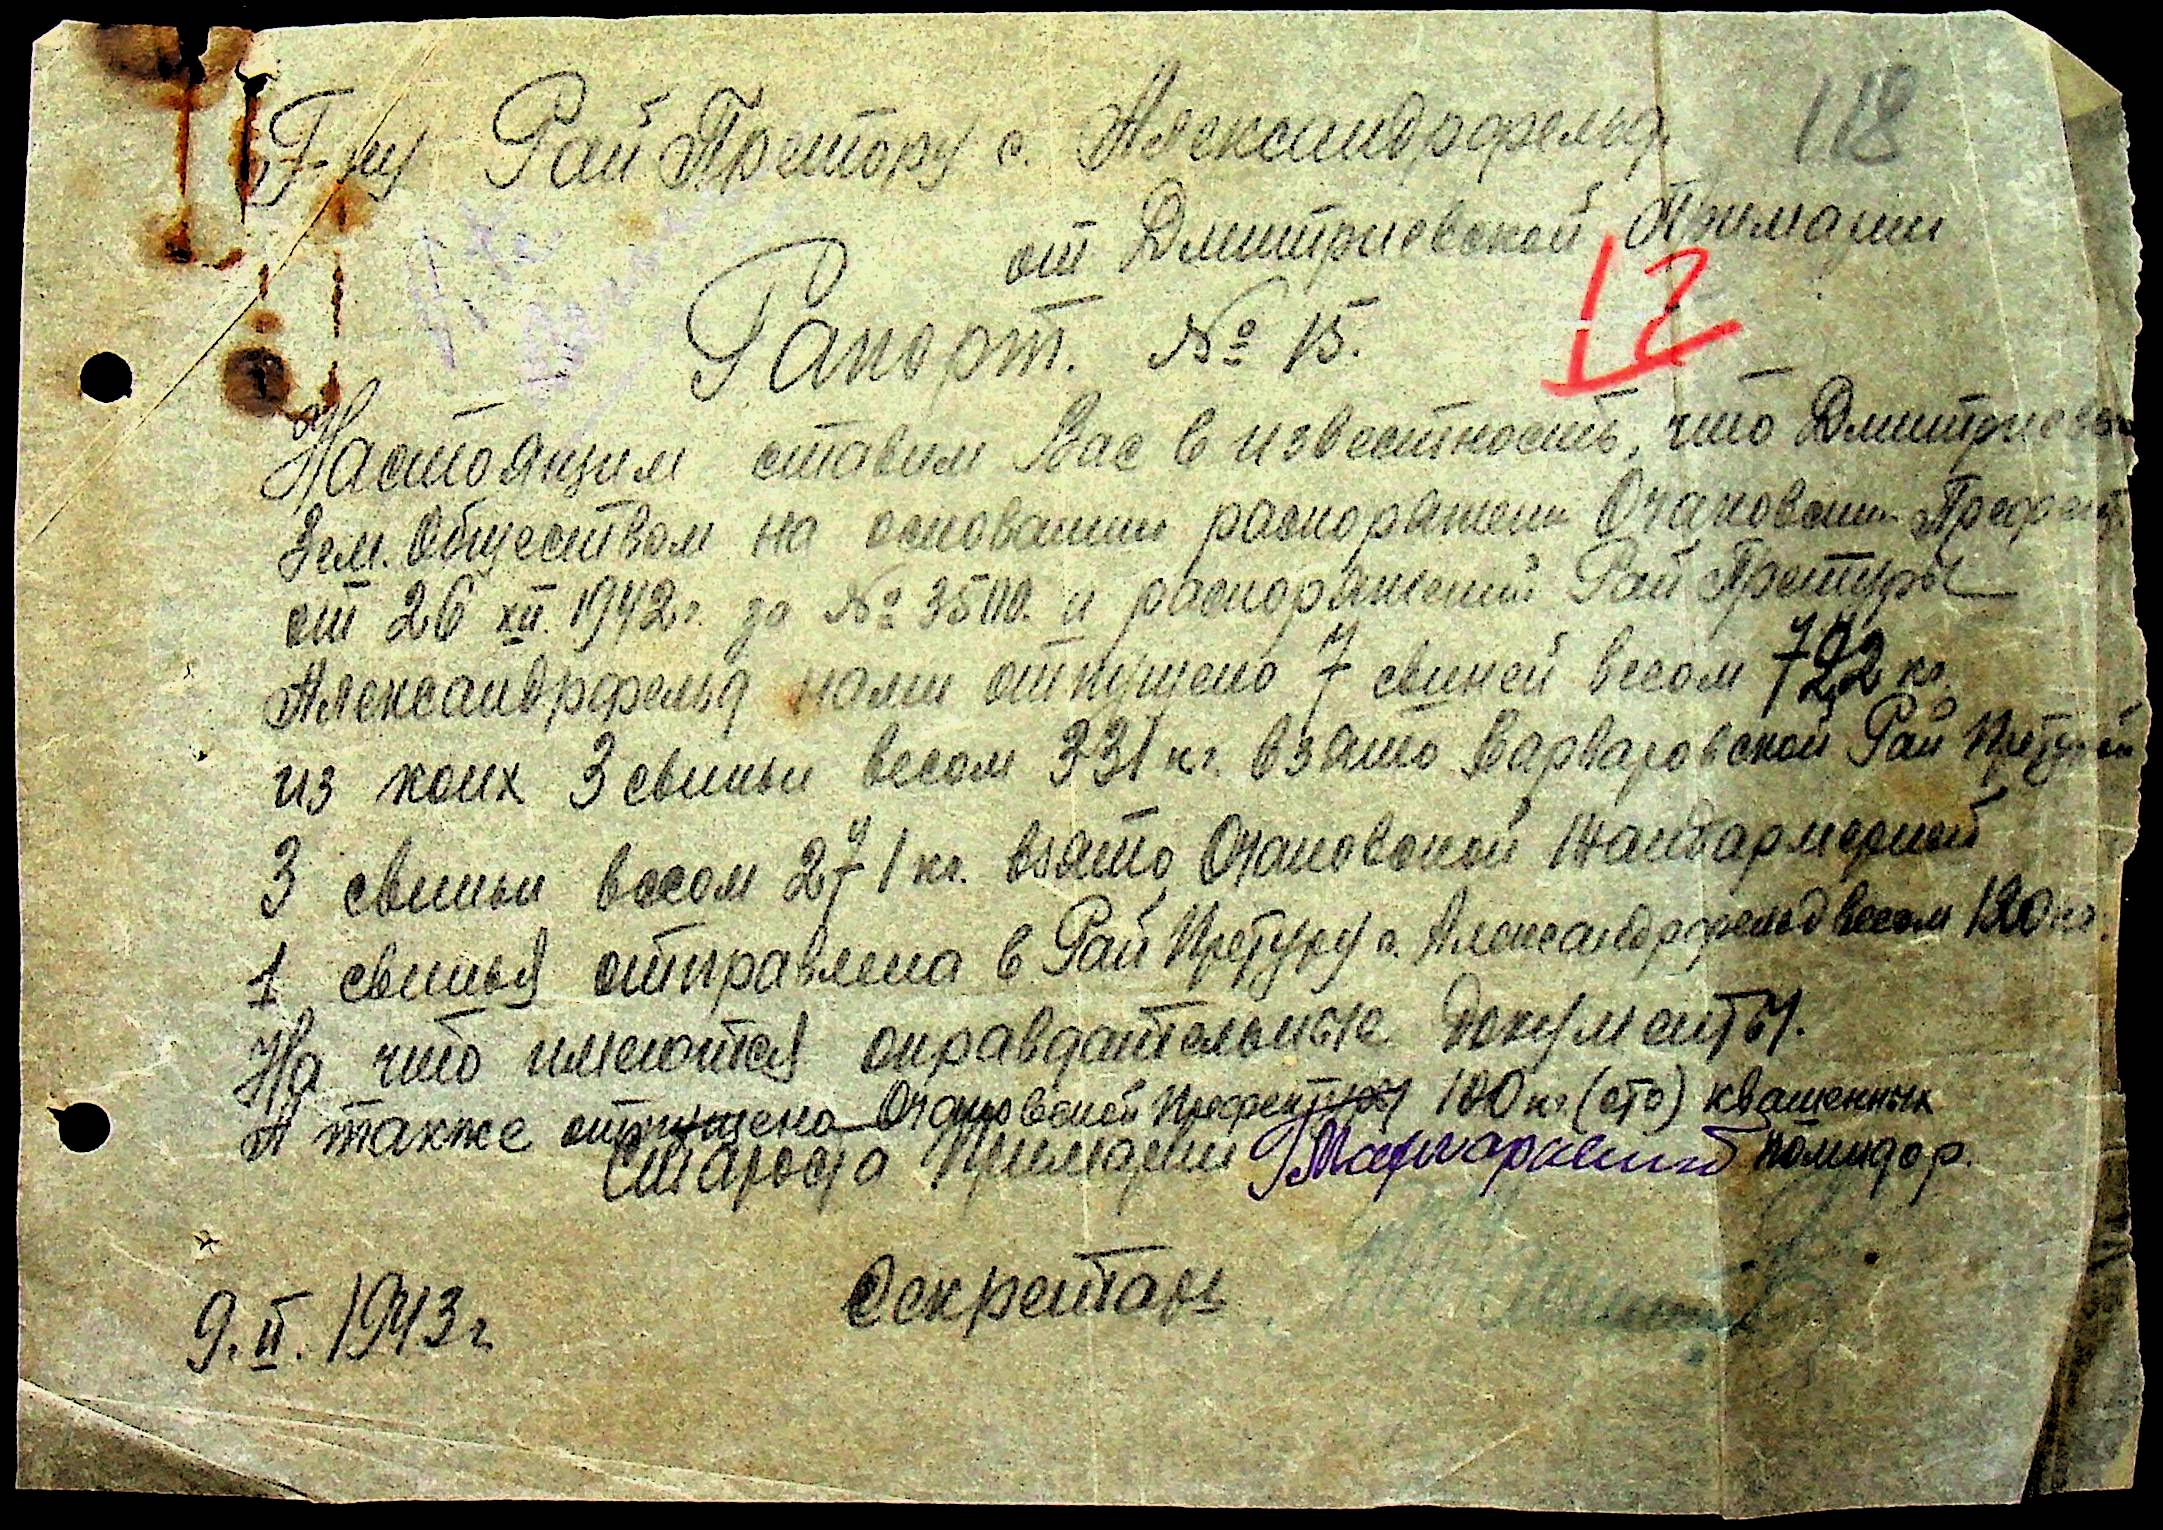 Г-ну Рай Претору с. Александрфельд
118
от Дмитриевской Примарии
12
Рапорт. № 15.
Настоящим ставим Вас в известность, что Дмитриевск
Зем. Обществом на основании распоряжени Очаковской Префект.
от 26 XII. 1942 г. за № 3500. и распоряжений Рай Претуры
Александрфельд нами отпущено 7 свиней весом 722 кг.
из коих 3 свиньи весом 331 кг. взято Варваровской Рай Претурой
3 свиньи весом 271 кг. взято Очаковской Жандармерией
1 свинья отправлена в Рай Претуру с. Александрфельд весом 120 кг.
На что имеются оправдательные документы.
А также отпущено Очаковской Префектуры 100 кг. (сто) квашенных
помидор.
Староста Примарии
Секретарь
9. II. 1943 г